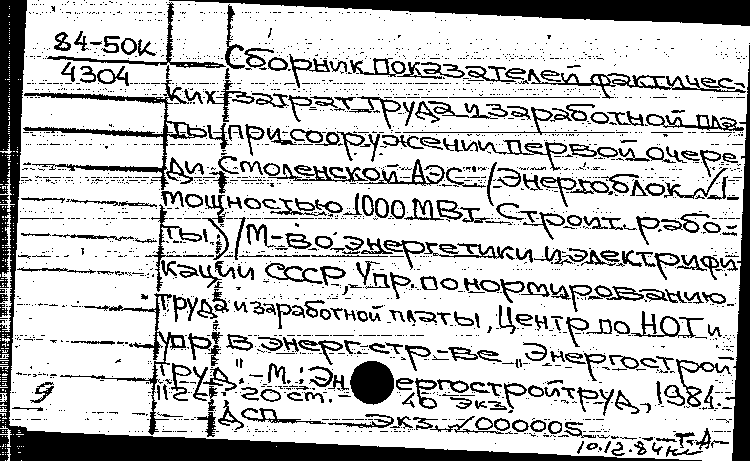 84-50к
4304
Сборник показателей фактичес-
ких затрат труда и заработной пла-
ты при сооружении первой очере-
ди Смоленской АЭС (Энергоблок №1
мощностью 1000 МВт. Строит. рабо-
ты) / М-во энергетики и электрифи
кации СССР, Упр. по нормированию
труда и заработной платы, Центр по НОТ и
упр. в энерг. стр-ве „Энергострой
труд". - М.: Энергостройтруд, 1984.-
112 с.: 20 см. - 40 экз.
9
ДСП экз. №000005
10.12.84